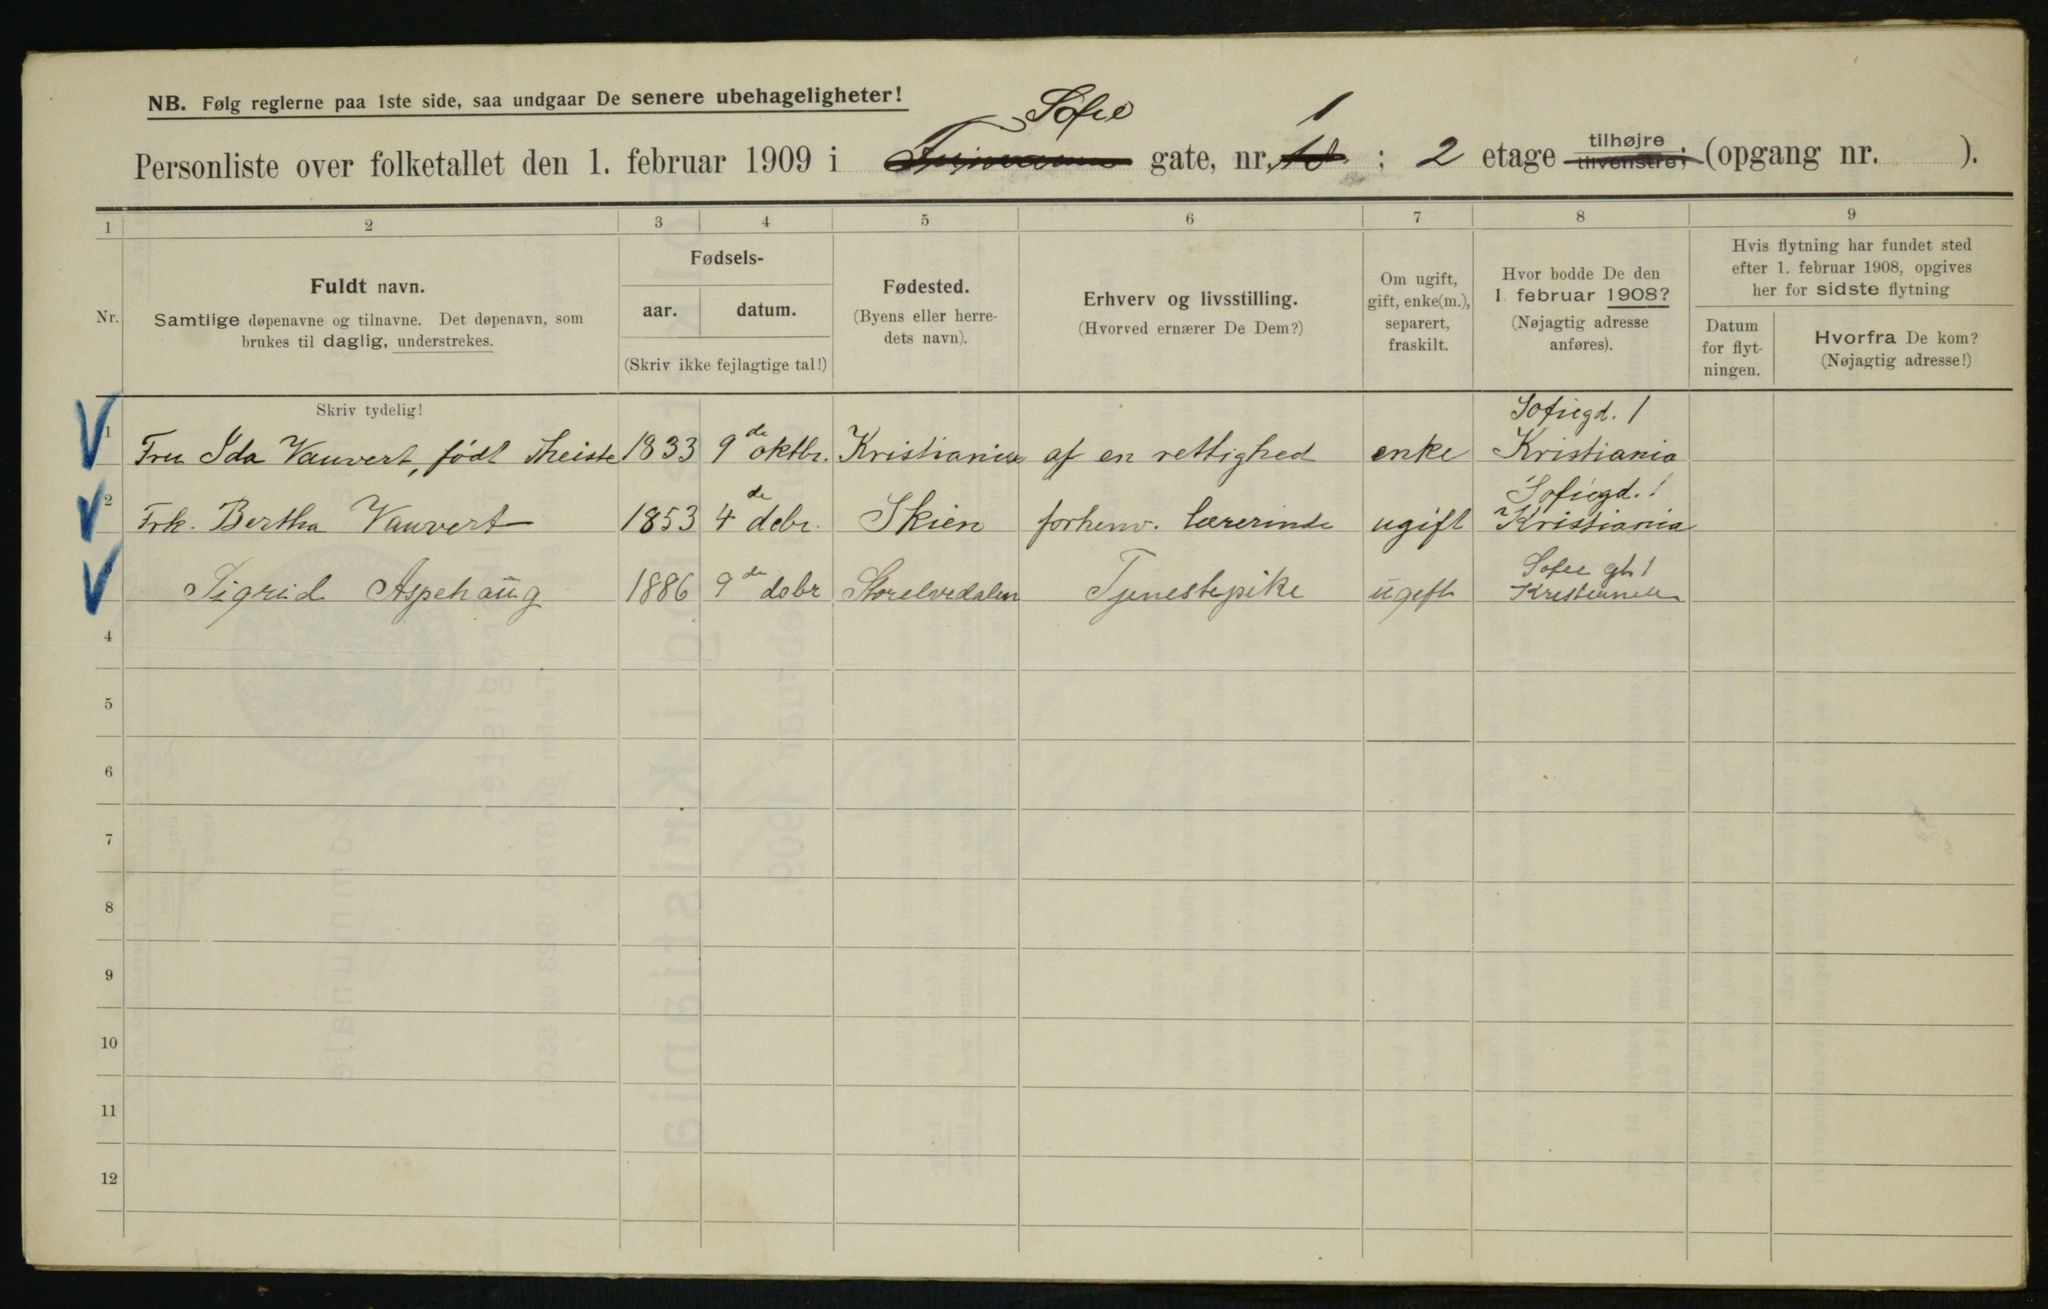 NB. Følg reglerne paa 1ste side, saa undgaar De senere ubehageligheter!
Sofie 1
Personliste over folketallet den 1. februar 1909 i gate, nr. 10 ; 2 etage tilhøjre tilvenstre; (opgang nr. ).
1 2 3 4 5 6 7 8 9
Nr.
Fuldt navn.
Samtlige døpenavne og tilnavne. Det døpenavn, som
brukes til daglig, understrekes.
Fødsels-
aar. datum.
(Skriv ikke fejlagtige tal!)
Fødested.
(Byens eller herre-
dets navn).
Erhverv og livsstilling.
(Hvorved ernærer De Dem?)
Om ugift,
gift, enke(m.),
separert,
fraskilt.
Hvor bodde De den
1. februar 1908?
(Nøjagtig adresse
anføres).
Hvis flytning har fundet sted
efter 1. februar 1908, opgives
her for sidste flytning
Datum
for flyt-
ningen.
Hvorfra De kom?
(Nøjagtig adresse!)
Skriv tydelig!
Sofiegd. 1
1 Fru Ida Vauvert, født Theiste 1833 9de oktbr. Kristiania af en rettighed enke Kristiania
Sofiegd. 1
2 Frk. Bertha Vauvert 1853 4de debr. Skien forhenv. lærerinde ugift Kristiania
Sofie gt 1
Sigrid Aspehaug 1886 9de debr Storelvedalen Tjenestepike ugift Kristiania
4
5
6
7
8
9
10
11
12